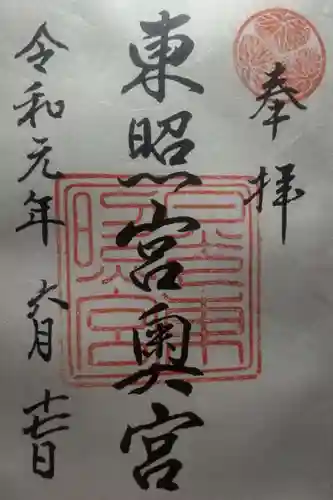 奉拝
東照宮奥宮
令和元年 六月 十七日